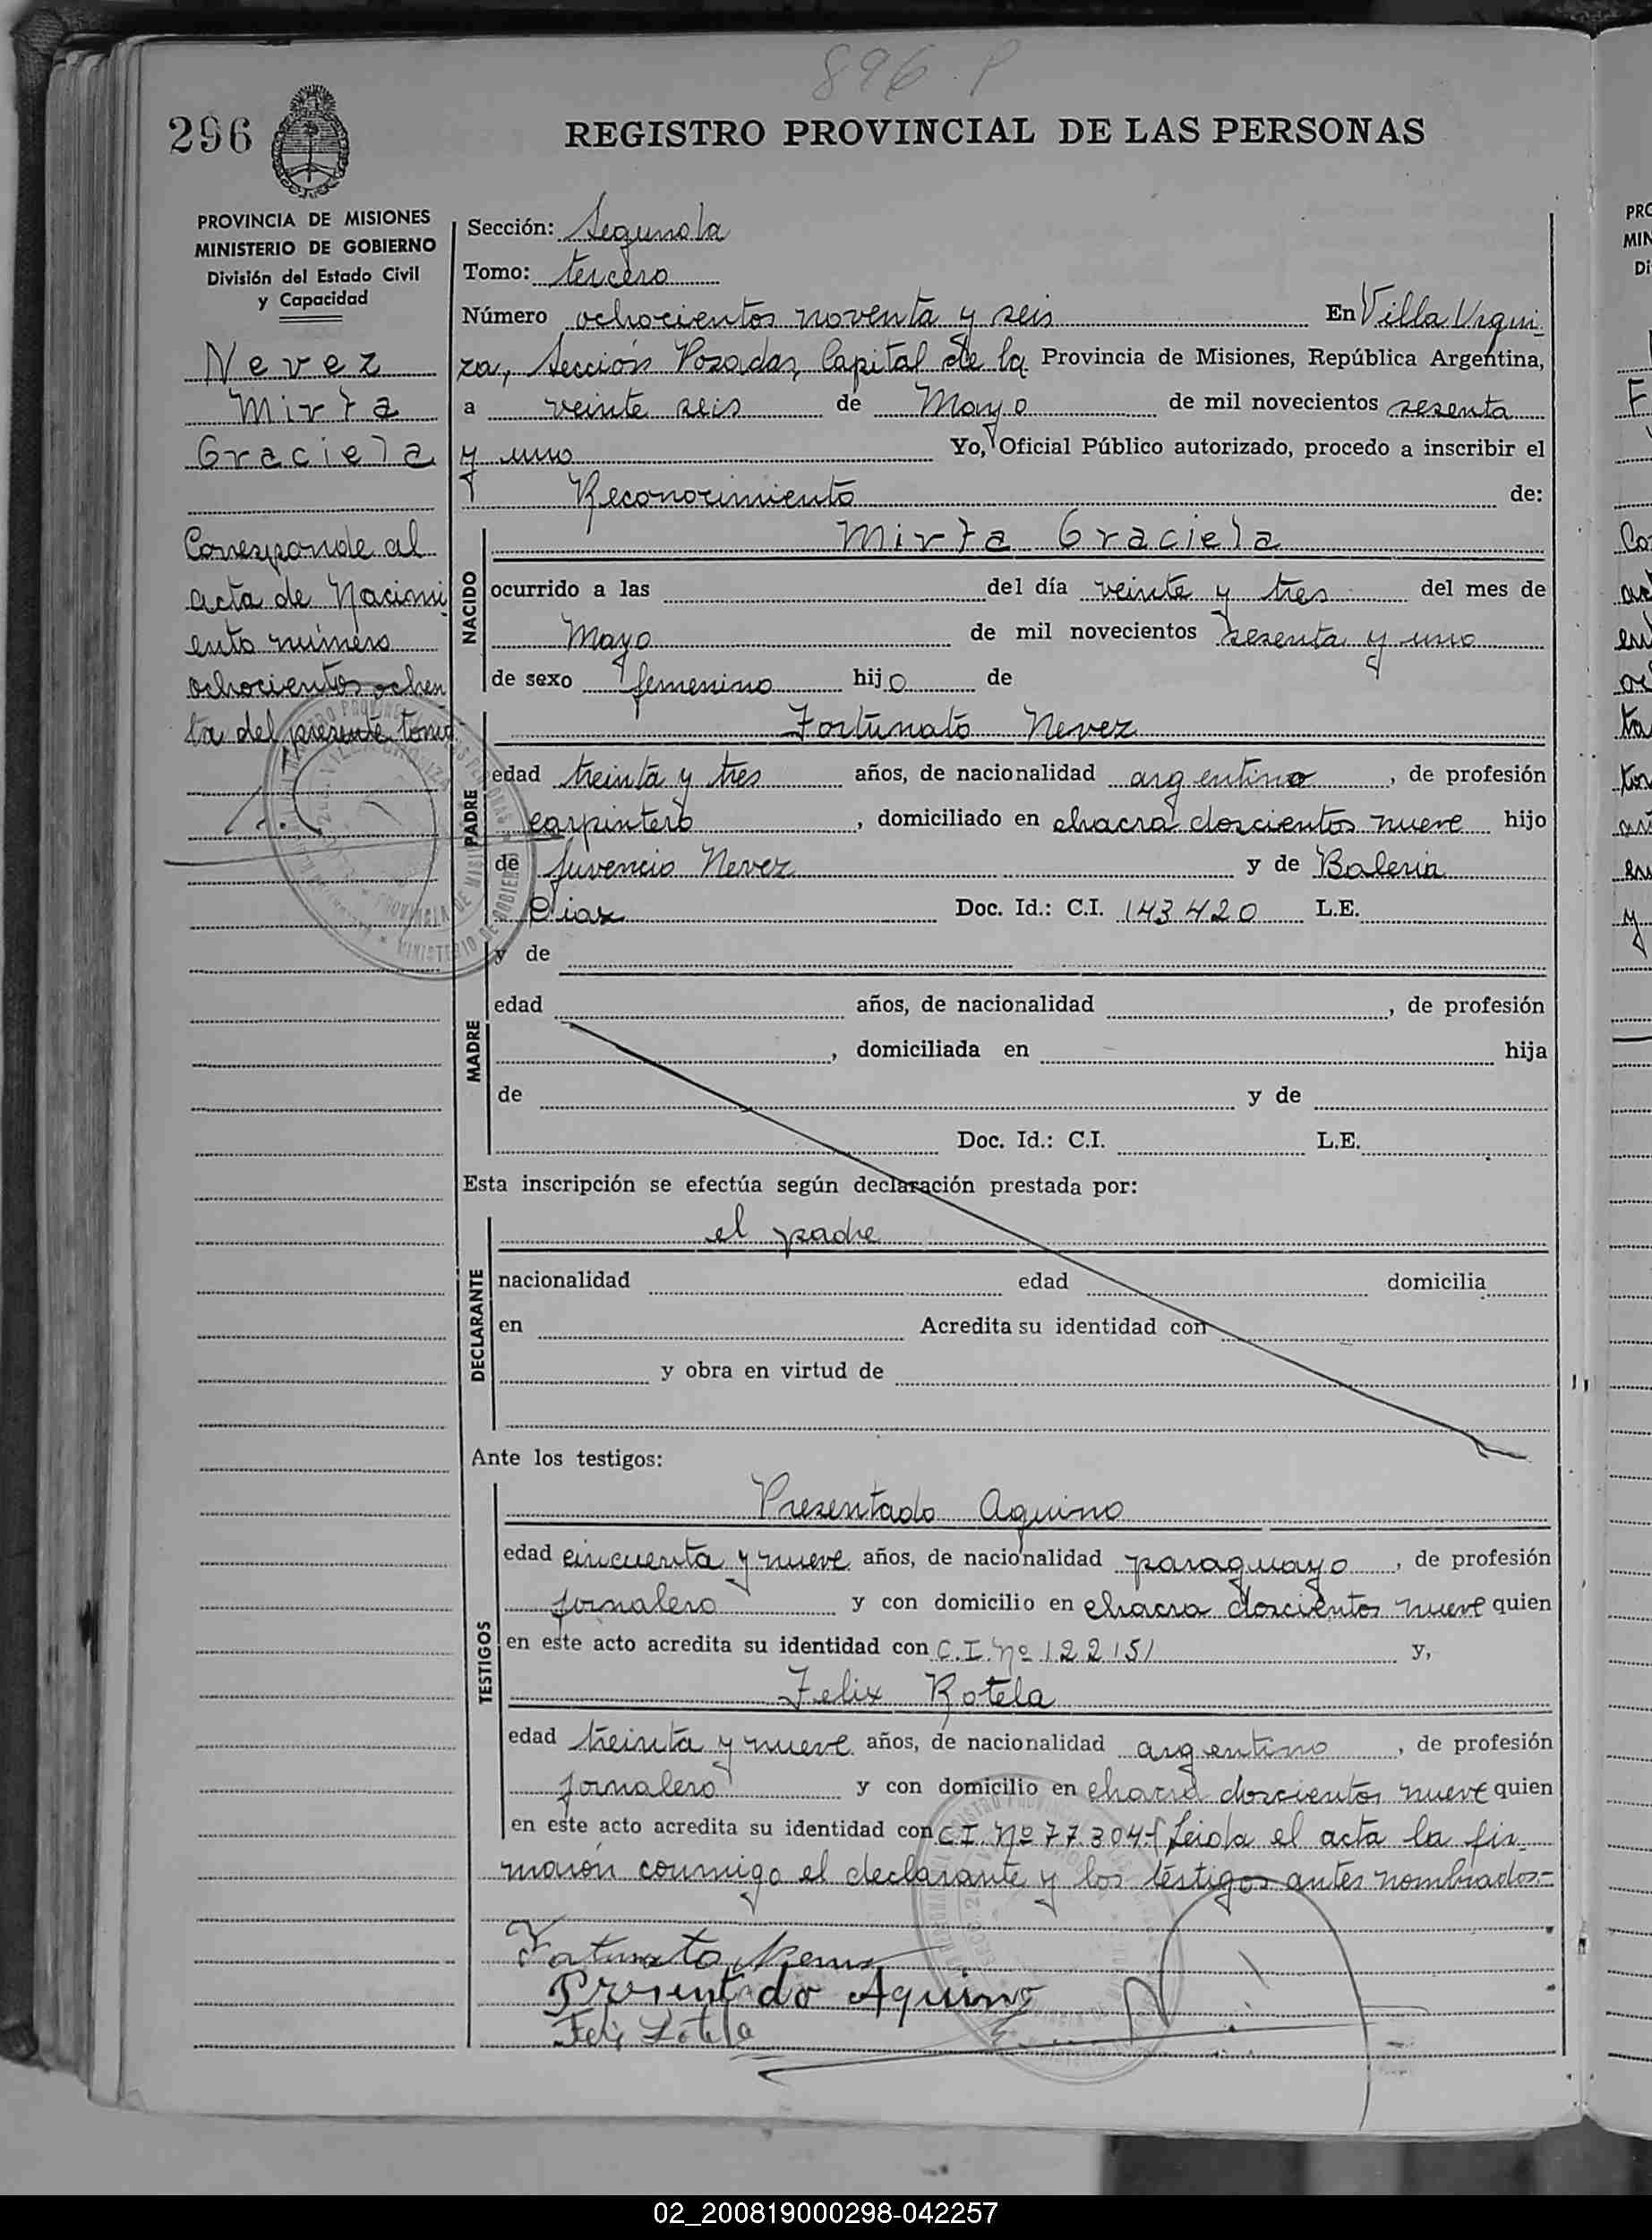 896 P
296
REGISTRO PROVINCIAL DE LAS PERSONAS
PROVINCIA DE MISIONES
MINISTERIO DE GOBIERNO
División del Estado Civil
y Capacidad
Nevez
Mirta
Graciela
Corresponde al
acta de Nacimi
ento número
ochocientos ochen
ta del presente tomo
Sección: Segunda
Tomo: tercero
Número ochocientos noventa y seis En Villa Urqui-
za, Sección Posadas, Capital de la Provincia de Misiones, República Argentina,
a veinte seis de Mayo de mil novecientos sesenta
y uno Yo, Oficial Público autorizado, procedo a inscribir el
Reconocimiento de:
NACIDO
Mirta Graciela
ocurrido a las del día veinte y tres del mes de
Mayo de mil novecientos sesenta y uno
de sexo femenino hijo de
PADRE
Fortunato Nevez
edad treinta y tres años, de nacionalidad argentino, de profesión
carpintero, domiciliado en chacra doscientos nueve hijo
de Juvencio Nevez y de Baleria
Diaz Doc. Id.: C.I. 143420 L.E.
y de
MADRE
edad años, de nacionalidad , de profesión
, domiciliada en hija
de y de
Doc. Id.: C.I. L.E.
Esta inscripción se efectúa según declaración prestada por:
DECLARANTE
el padre
nacionalidad edad domicilia
en Acredita su identidad con
y obra en virtud de
Ante los testigos:
TESTIGOS
Presentado Aquino
edad cincuenta y nueve años, de nacionalidad paraguayo, de profesión
jornalero y con domicilio en chacra doscientos nueve quien
en este acto acredita su identidad con C.I. Nº 122151 y,
Felix Rotela
edad treinta y nueve años, de nacionalidad argentino, de profesión
jornalero y con domicilio en chacra doscientos nueve quien
en este acto acredita su identidad con C.I. Nº 77304 Leida el acta la fir-
maron conmigo el declarante y los testigos antes nombrados=
Fortunato
Presentado Aquino
02_200819000298-042257